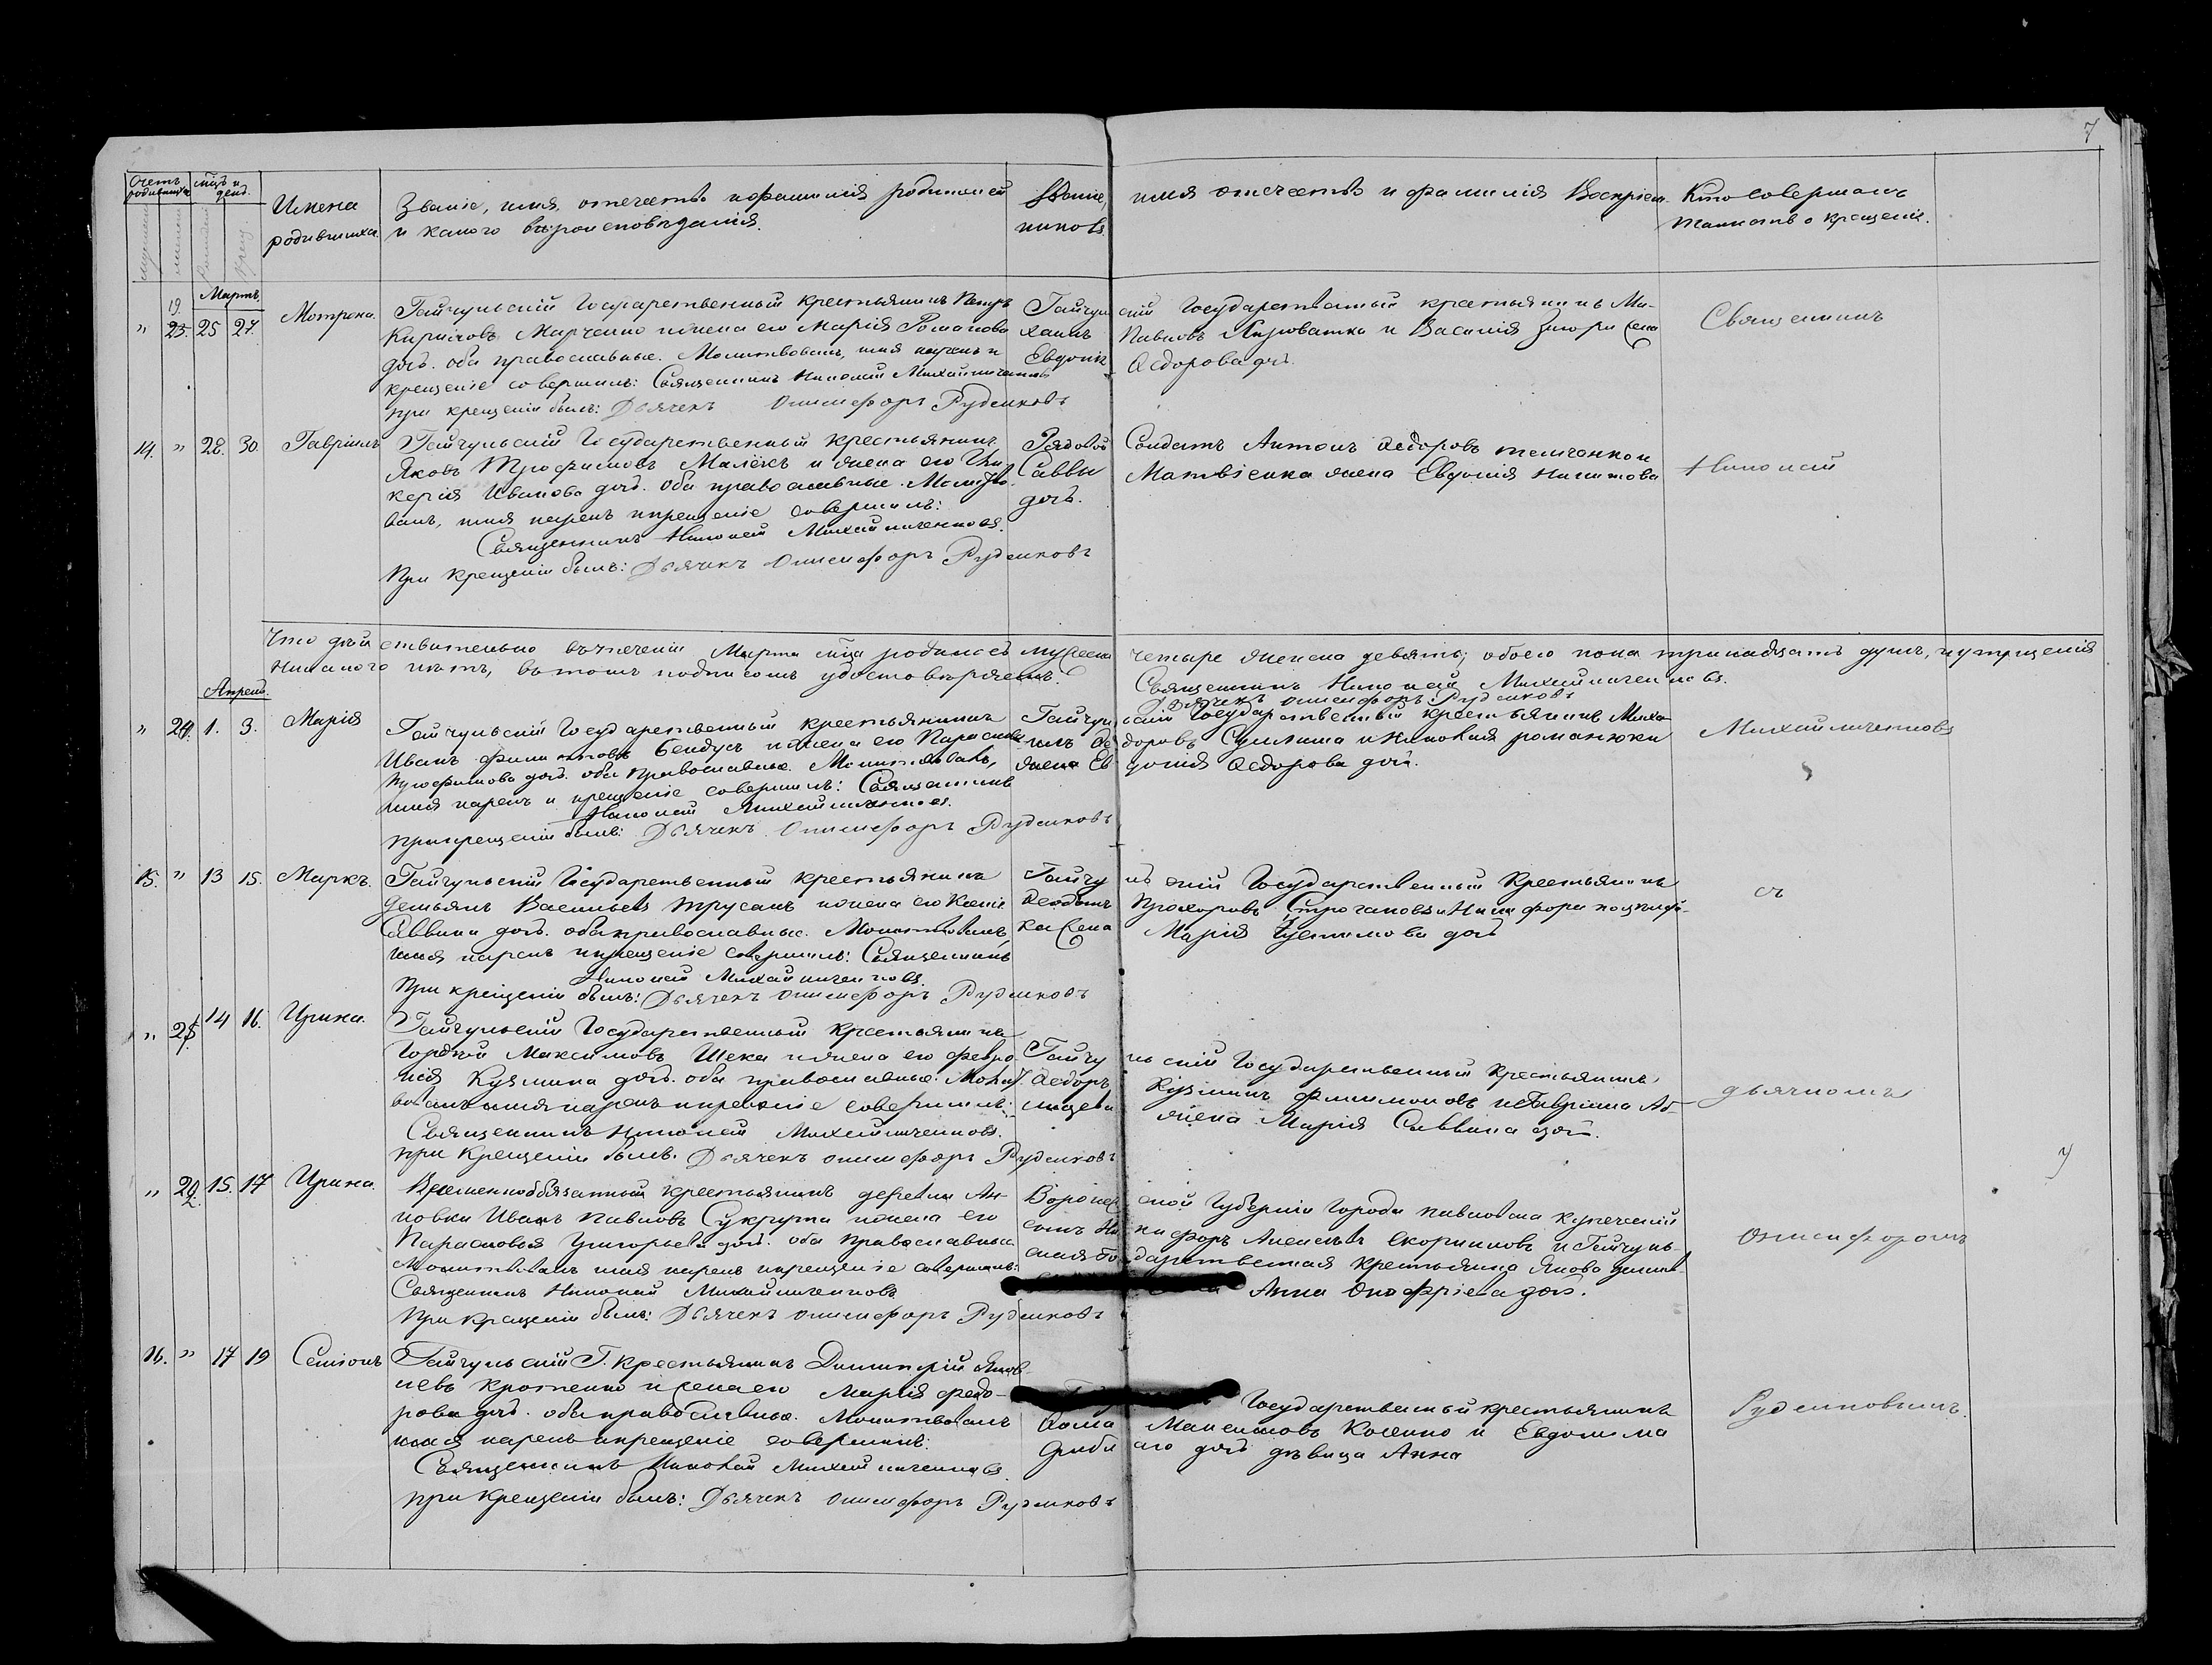 7
Счетъ родившихся
мѣсц. и день
мужеска
женска
Рожденія
Крещ.
Имена
родившихся.
Званіе, имя, отчество и фамилія родителей
и какого вѣроисповѣданія.
Званіе, имя отчество и фамилія Воспріем-
никовъ.
Кто совершалъ
таинство крещенія.
Мартъ
19.
" 23. 25 27. Мотрона.
Гайчульскій Государственный крестьянинъ Петръ
Кириловъ Марченко и жена его Марія Романова
дочь. оба православные. Молитвовалъ, имя нареклъ и
крещеніе совершилъ: Священникъ Николай Михайличенковъ
При крещеніи былъ: Дьячекъ Онисифоръ Рудиковъ
Гайчульскій Государственный крестьянинъ Ми-
хаилъ Павловъ и Василія жена
Евдокія Ѳедорова дочь.
Священникъ
14. " 28. 30. Гавріилъ
Гайчульскій Государственный крестьянинъ
Яковъ Трофимовъ Малёкъ и жена его Гли-
керія Иванова дочь. Оба православные. Молитво-
валъ, имя нареклъ и крещеніе совершилъ:
Священникъ Николай Михайличенковъ.
При крещеніи былъ: Дьячекъ Онисифоръ Рудиковъ
Рядовой Солдатъ Антонъ Ѳедоровъ и
Саввы Матвіенка жена Евдокія Никитова
дочь.
Николай
Что дѣйствительно въ теченіи Марта мѣца родилось мужеска четыре женска девять, обоего пола тринадцать душъ, и упущенія
никакого нѣтъ, въ томъ подписомъ удостовѣряемъ. Священникъ Николай Михайличенковъ.
Дьячекъ Онисифоръ Рудиковъ
Апрель.
" 20. 1. 3. Марія
Гайчульскій Государственный крестьянинъ
Иванъ Филиповъ Бендусъ и жена его Параскева
Трофимова дочь. оба православные. Молитвовалъ,
имя нареклъ и крещеніе совершилъ: Священникъ
Николай Михайличенковъ.
При крещеніи былъ: Дьячекъ Онисифоръ Рудиковъ
Гайчульскій Государственный крестьянинъ Миха-
илъ Ѳедоровъ и Николая Романюки
жена Евдокія Ѳедорова дочь.
Михайличенковъ
15. " 13 15. Маркъ.
Гайчульскій Государственный крестьянинъ
Демьянъ Васильевъ Трусанъ и жена его Ксенія
Саввина дочь. оба православные. Молитвовалъ,
имя нареклъ и крещеніе совершилъ: Священникъ
Николай Михайличенковъ.
При крещеніи былъ: Дьячекъ Онисифоръ Рудиковъ
Гайчульскій Государственный Крестьянинъ
Ѳеодотъ Прохоровъ Строгановъ и Никифора
жена Марія дочь
съ
" 14 16. Ирина.
Гайчульскій Государственный крестьянинъ
Гордѣй Максимовъ Шека и жена его Февро-
нія Кузмина дочь. оба православные. Молит-
вовалъ имя нареклъ и крещеніе совершилъ:
Священникъ Николай Михайличенковъ.
При крещеніи былъ: Дьячекъ Онисифоръ Рудиковъ
Гайчульскій Государственный Крестьянинъ
Ѳедоръ Кузминъ Филимоновъ и Гавріила
жена Марія Саввина дочь.
дьячкомъ
" 15. 17 Ирина.
Временнообязанный крестьянинъ деревни Ан-
новки Иванъ Павловъ Сукрутъ и жена его
Парасковія Григорьева дочь. оба православные
Молитвовалъ имя нареклъ и крещеніе совершилъ:
Священникъ Николай Михайличенковъ
При крещеніи былъ: Дьячекъ Онисифоръ Рудиковъ
Воронежской Губерніи Города Павловска купеческій
сынъ Никифоръ Алексѣевъ Скорняковъ и Гайчуль-
ская Государственная крестьянка Якова
Анна Онофріева дочь.
Онисифоромъ
16. " 17 19 Семіонъ
Гайчульскій Г. крестьянинъ Димитрій Яков-
левъ Кротенко и жена его Марія Федо-
рова дочь. оба православные. Молитвовалъ
имя нареклъ и крещеніе совершилъ:
Священникъ Николай Михайличенковъ
При крещеніи былъ: Дьячекъ Онисифоръ Рудиковъ
Государственный крестьянинъ
Ѳома Максимовъ Косенко и Евдокима
дочь дѣвица Анна
Рудиковымъ.